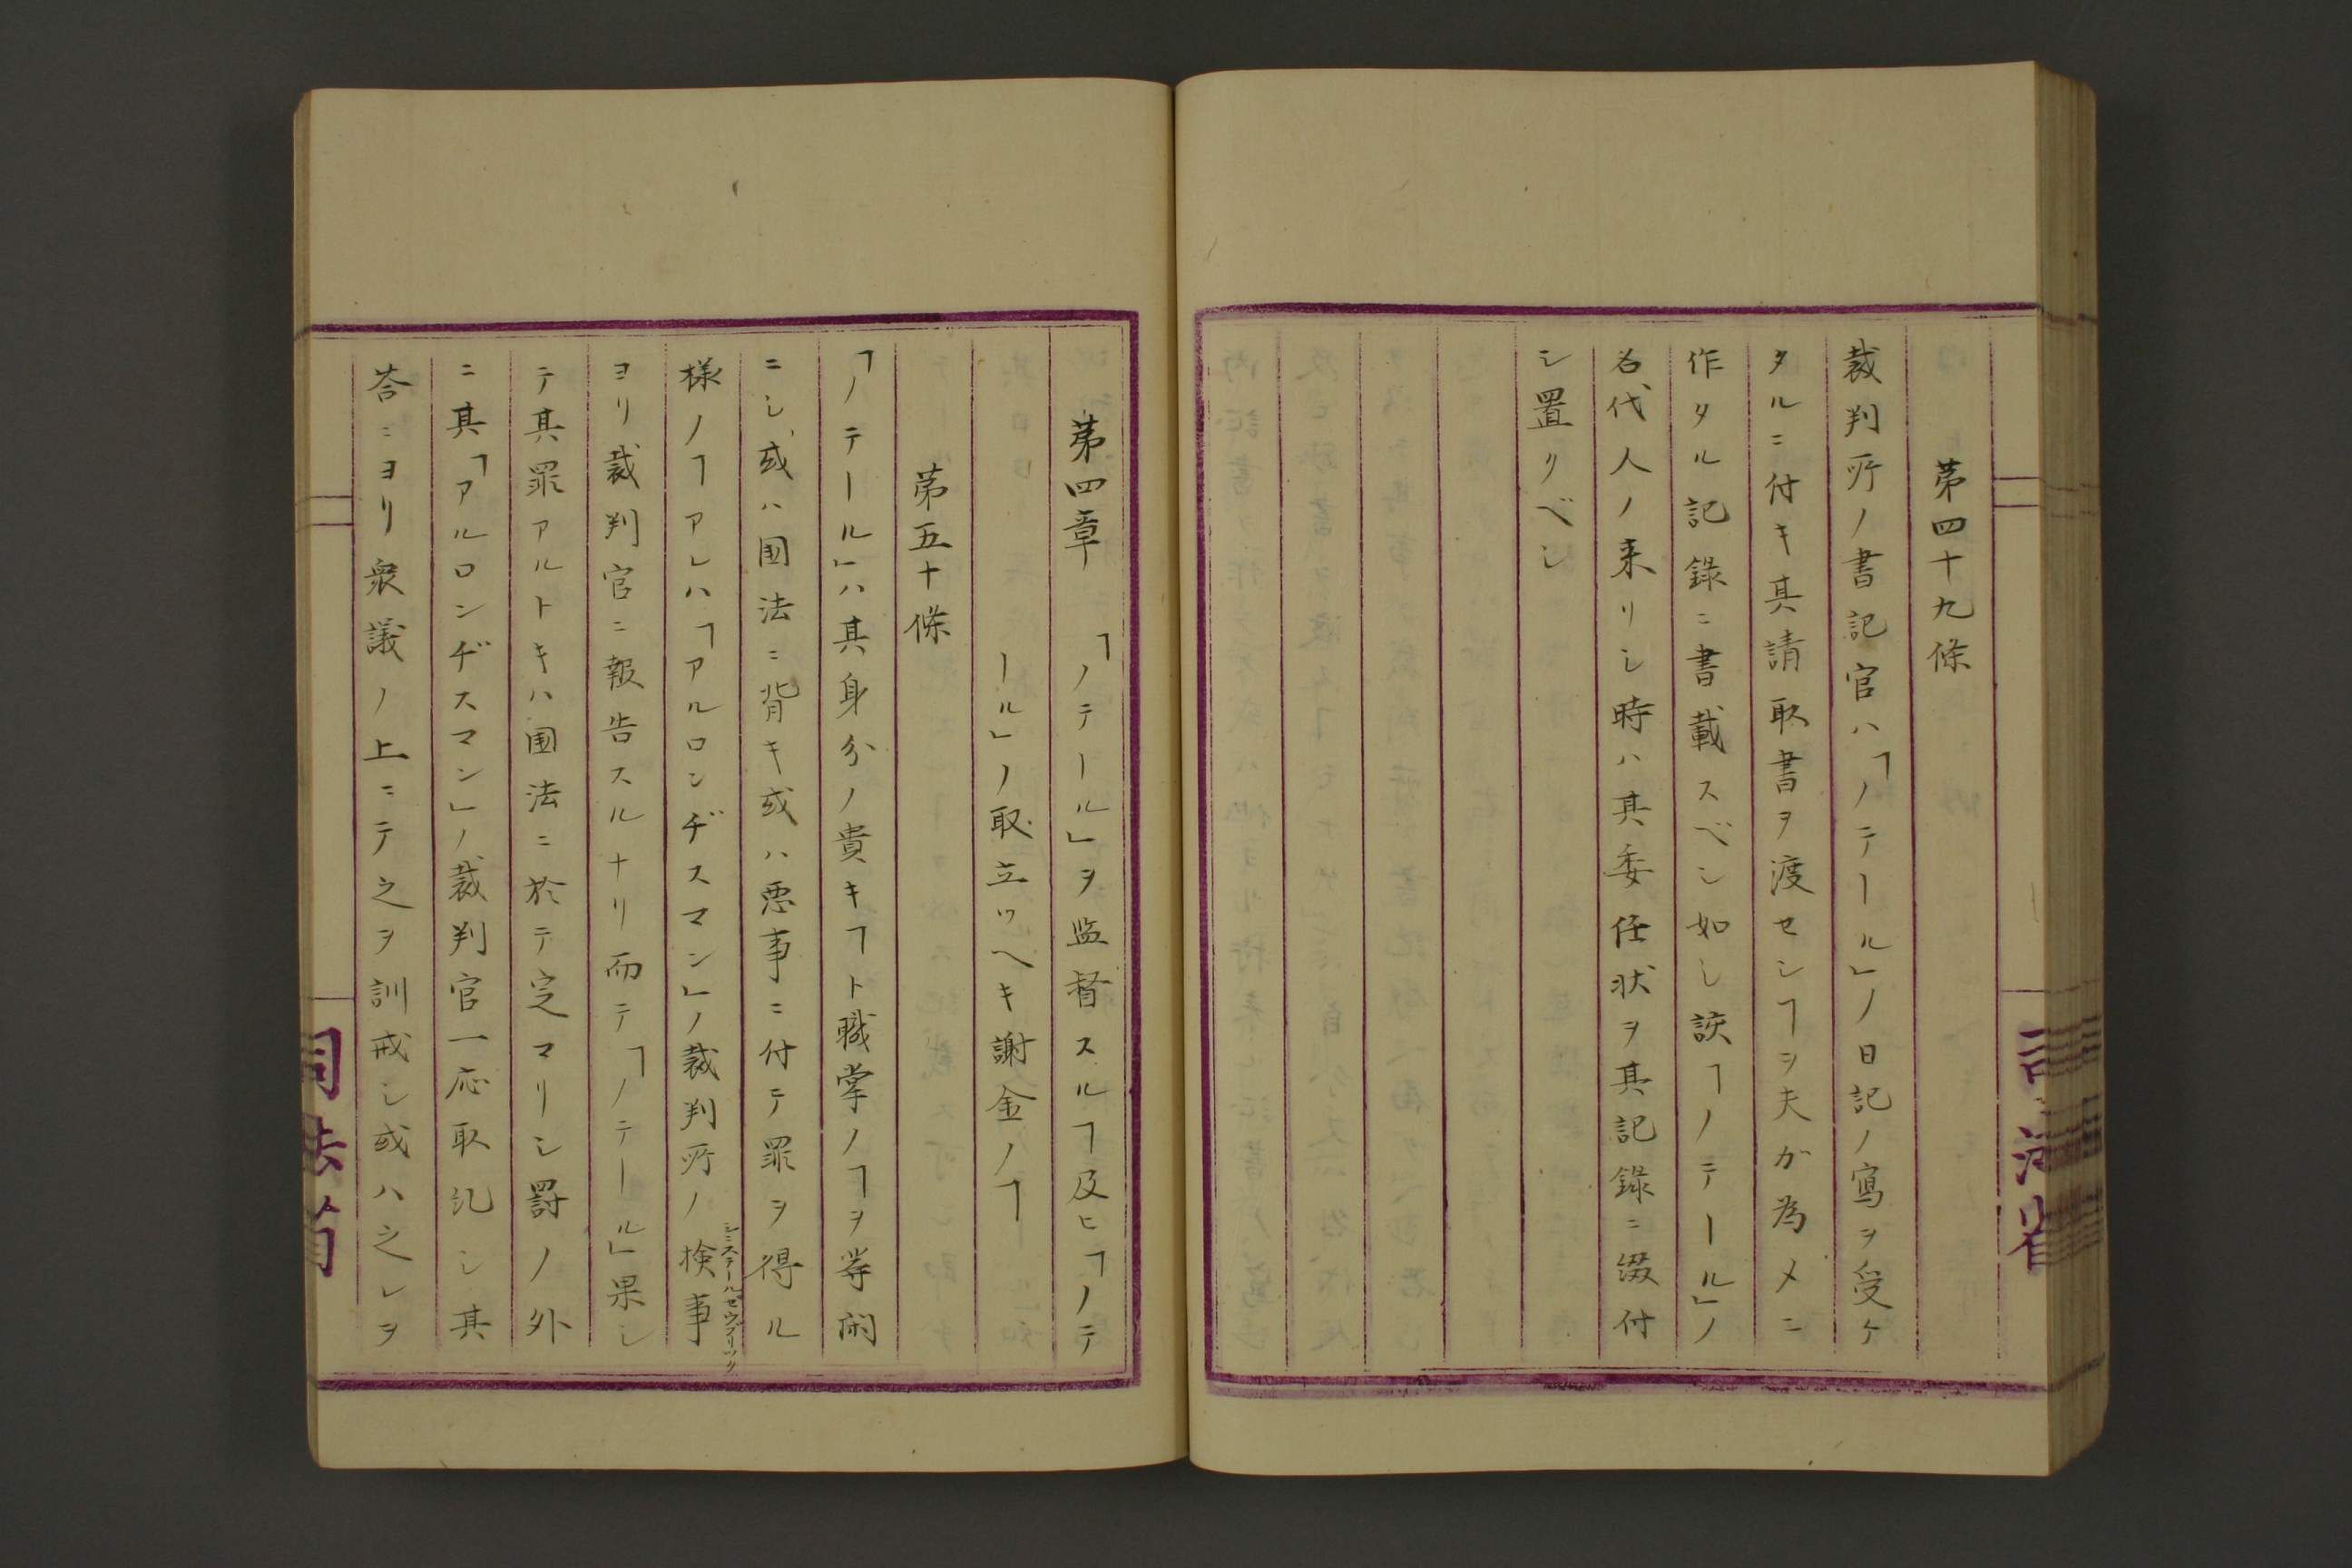 第四十九條
裁判所ノ書記官ハ「ノテール」ノ日記ノ寫ヲ受ケ
タルニ付キ其請取書ヲ渡セシヿヲ夫ガ為メニ
作タル記録ニ書載スベシ如シ該「ノテール」ノ
名代人ノ来リシ時ハ其委任状ヲ其記録ニ綴付
シ置クベシ
第四章　「ノテール」ヲ監督スルヿ及ヒ「ノテ
ール」ノ取立ツヘキ謝金ノヿ
第五十條
「ノテール」ハ其身分ノ貴キヿト職掌ノヿヲ等閑
ニシ或ハ国法ニ背キ或ハ悪事ニ付テ罪ヲ得ル
様ノヿアレハ「アルロンヂスマン」ノ裁判所ノ検事
ヨリ裁判官ニ報告スルナリ而テ「ノテール」果シ
テ其罪アルトキハ国法ニ於テ定マリシ罰ノ外
ニ其「アルロンヂスマン」ノ裁判官一応取糺シ其
答ニヨリ衆議ノ上ニテ之ヲ訓戒シ或ハ之レヲ
司法省